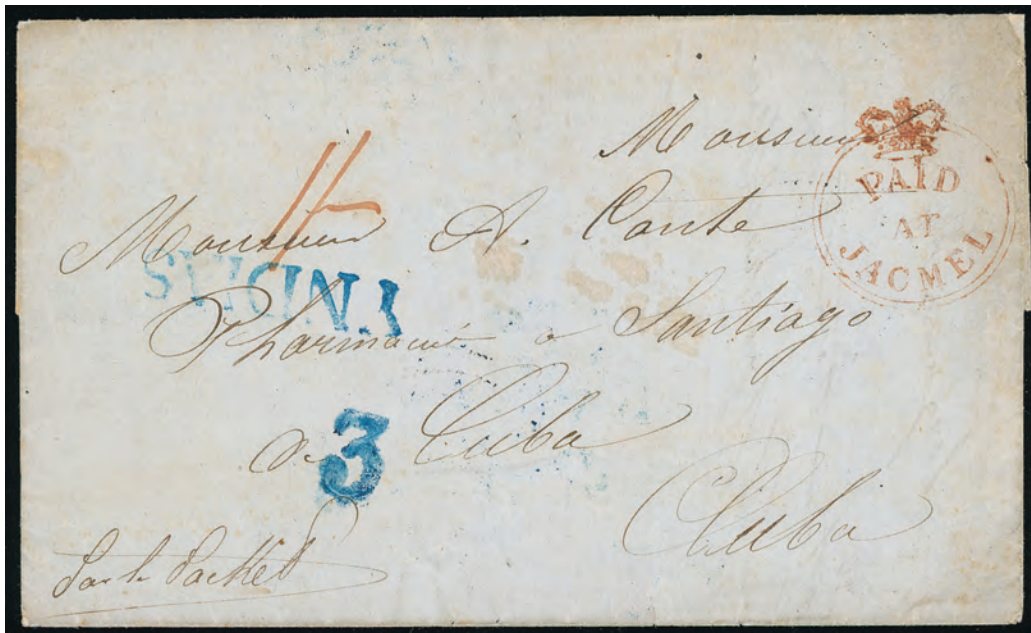 Monsieur
PAID
AT
JACMEL
1/-
Monsieur A. Conte
Pharmacien a Santiago
de Cuba
3
Cuba
Par le Packet